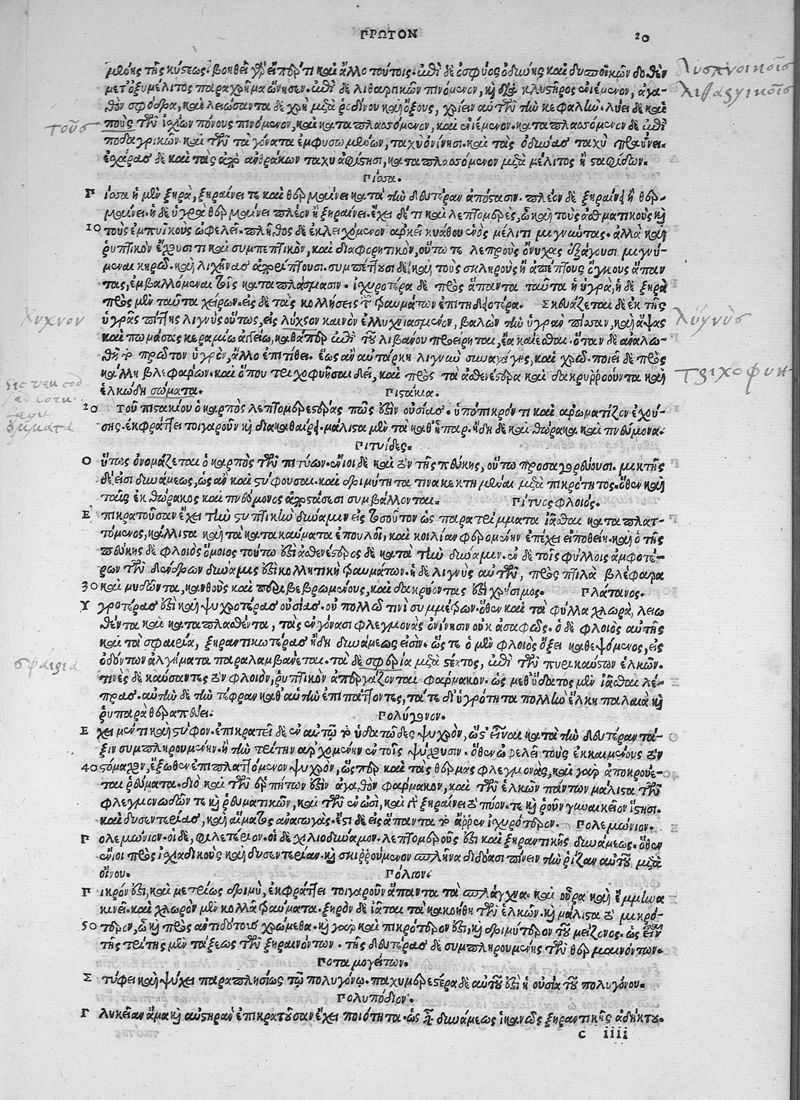 ΠΡΩΤΟΝ 20
μένης τῆς κύσεως. βοηθεῖ γὰρ εἴπερ τι καὶ ἄλλο τούτοις. ἐπὶ δὲ ὀσφύος ὀδύνης καὶ δυσπνοϊκῶν δοθὲν
μετ' ὀξυμέλιτος παραχρῆμα ὤνησεν. ἐπὶ δὲ λιθαργικῶν πινόμενον, καὶ διὰ κλυστῆρος ἐνιέμενον, ἀγα-
θὸν σφόδρα, καὶ λειώσαντα δὲ χρὴ μετὰ ῥοδίνου καὶ ὄξους, χρίειν αὐτῶν τὴν κεφαλήν. λύει δὲ καὶ
ποὺς τῶν ἰσχίων πόνους πινόμενον, καὶ καταπλασσόμενον, καὶ ἐνιέμενον. καταπλασσόμενον δὲ ἐπὶ
ποδαγρικῶν καὶ τῶν τὰ γόνατα ἐμφυσωμένων, ταχὺ ὀνίνησι. καὶ τὰς ὀδύνας ταχὺ πραύνει.
ἐσχάρας δὲ καὶ τὰς ἀπὸ ἀνθράκων ταχὺ ἀφίστησι, καταπλασσόμενον μετὰ μέλιτος ἢ σταφίδων.
Πίσσα.
Π ίσσα ἡ μὲν ξηρὰ, ξηραίνει τε καὶ θερμαίνει κατὰ τὴν δευτέραν ἀπόστασιν. πλέον δὲ ξηραίνει ἢ θερ-
μαίνει. ἡ δὲ ὑγρὰ θερμαίνει πλέον ἢ ξηραίνει. ἔχει δέ τι καὶ λεπτομερὲς, ᾧ καὶ τοὺς ἀσθματικοὺς καὶ
10 τοὺς ἐμπυϊκοὺς ὠφελεῖ. πλῆθος δὲ ἐκλειχόμενον ἀρκεῖ κυάθου ἑνὸς μέλιτι μιγνύντας. ἀλλὰ καὶ
ῥυπτικὸν ἔχουσί τι καὶ συμπεπτικὸν, καὶ διαφορητικὸν, οὕτω τε λεπροὺς ὄνυχας ἐξάγουσι μιγνύ-
μεναι κηρῷ. καὶ λιχῆνας ἀπορρίπτουσι. συμπέττουσι δὲ καὶ τοὺς σκληροὺς καὶ ἀπέπτους ὄγκους ἅπαν
τας, ἐμβαλλόμεναι τοῖς καταπλάσμασιν. ἰσχυροτέρα δὲ πρὸς ἅπαντα ταῦτα ἡ ὑγρὰ, ἡ δὲ ξηρὰ
πρὸς μὲν ταῦτα χείρων. εἰς δὲ τὰς κολλήσεις τῶν τραυμάτων ἐπιτηδειοτέρα. Σκευάζεται δὲ ἐκ τῆς
ὑγρᾶς πίττης λιγνὺς οὕτως, εἰς λύχσον καινὸν ἐλλυχνιασμένον, βαλὼν τὴν ὑγρὰν πίσσαν, καὶ ἅψας
καὶ πωμάσας κεραμίῳ ἀγγείῳ, καθάπερ ἐπὶ τοῦ λιβάνου προείρηται, ἔα καίεσθαι. ὅταν δὲ ἀναλω-
θῇ τὸ πρῶτον ὑγρὸν, ἄλλο ἐπιτίθει. ἕως ἂν αὐτάρκη λιγνὺν συναγάγῃς, καὶ χρῶ. ποιεῖ δὲ πρὸς
κάλλη βλεφάρων. καὶ ὅπου τριχοφυῆσαι δεῖ, καὶ πρὸς τὰ ἀσθενέστερα καὶ δακρυρροοῦντα καὶ
ἑλκώδη σώματα. Πιστάκια.
20 Τοῦ πιστακίου ὁ καρπὸς λεπτομερεστέρας πώς ἐστιν οὐσίας. ὑπόπικρόν τι καὶ ἀρωματίζον ἐχού-
σης. ἐκφράττει τοιγαροῦν καὶ διακαθαίρει. μάλιστα μὲν τὰ καθ' ἧπαρ. ἤδη δὲ καὶ θώρακα καὶ πνεύμονα.
Πιτυΐδες.
Ο ὕτως ὀνομάζεται ὁ καρπὸς τῶν πιτύων. ἔνιοι δὲ καὶ τὸν τῆς πεύκης, οὕτω προσαγορεύουσι. μικτῆς
δέ εἰσι δυνάμεως, ὡς ἂν καὶ στύφουσαι. καὶ δριμύτητά τινα κεκτημέναι μετὰ πικρότητος. ὅθεν καὶ
ταῖς ἐκ θώρακος καὶ πνεύμονος ἀναπτύσεσι συμβάλλονται. Πίτυος φλοιός.
Ε πικρατοῦσαν ἔχει τὴν στυπτικὴν δύναμιν εἰς τοσοῦτον ὡς παρατρίμματα ἰᾶσθαι καταπλατ-
τόμενος, κάλλιστα καὶ τὰ κατακαύματα ἐπουλοῖ, καὶ κοιλίαν φερομένην ἐπέχει εἰ ποθείη. καὶ ὁ τῆς
πεύκης δὲ φλοιὸς ὅμοιος τούτῳ ἐστὶ ἀσθενέστερος δὲ κατὰ τὴν δύναμιν. ἐν δὲ τοῖς φύλλοις ἀμφοτέ-
ρων τῶν δένδρων δύναμις ἐστὶ κολλητικὴ τραυμάτων. ἡ δὲ λιγνὺς αὐτῶν, πρὸς πτίλα βλέφαρα
30 καὶ μυδῶντα, κανθοὺς καὶ περιβεβρωμένους, καὶ δακρύοντας ἐστὶ χρήσιμος. Πλάτανος.
Υ γροτέρας ἐστὶ καὶ ψυχροτέρας οὐσίας. οὐ πολλῷ τινὶ συμμέτρων. ὅθεν καὶ τὰ φύλλα χλωρὰ, λειω
θέντα καὶ καταπλασθέντα, τὰς ἐν γόνασι φλεγμονὰς ὀνίνησιν οὐκ ἀσαφῶς. ὁ δὲ φλοιὸς αὐτῆς
καὶ τὰ σφαιρία, ξηραντικωτέρας ἤδη δυνάμεώς εἰσιν. ὥς τε ὁ μὲν φλοιὸς ὄξει καθεψόμενος, εἰς
ὀδόντων ἀλγήματα παραλαμβάνεται. τὰ δὲ σφερία μετὰ στέατος, ἐπὶ τῶν πυρικαύστων ἑλκῶν.
τινὲς δὲ καύσαντες τὸν φλοιὸν, ῥυπτικὸν ἀπεργάζονται φάρμακον. ὡς μεθ' ὕδατος μὲν ἰᾶσθαι λέ-
πρας. αὐτὴν δὲ τὴν τέφραν καθ' αὑτὴν ἐπιπάττοντες, τά τε δι' ὑγρότητα πολλὴν ἕλκη παλαιὰ καὶ
ῥυπαρὰ θεραπεύει. Πολύγονον.
Ε χει μέν τι καὶ στῦφον. ἐπικρατεῖ δὲ ἐν αὐτῷ τὸ ὑδατῶδες ψυχρὸν, ὥς τ' εἶναι κατὰ τὴν δευτέραν τά-
ξιν συμπληρουμένην. ἢ τὴν τρίτην ἀρχομένην ἐν τοῖς ψύχουσιν. ὅθεν ὠφελεῖ τοὺς ἐκκαιομένους τὸν
40 στόμαχον, ἔξωθεν ἐπιπλαττόμενον ψυχρὸν, ὥσπερ καὶ τὰς θερμὰς φλεγμονὰς, καὶ γὰρ ἀποκρούε-
ται ῥεύματα. διὸ καὶ τῶν ἑρπήτων ἐστὶν ἀγαθὸν φάρμακον, καὶ τῶν ἑλκῶν πάντων μάλιστα τῶν
φλεγμονωδῶν τε καὶ ῥευματικῶν, καὶ τῶν ἐν ὠσὶ, καὶ εἰ ξηραίνει τὸ πύον. τε καὶ ῥοῦν γυναικεῖον ἵστησι.
καὶ δυσεντερίας, καὶ αἵματος ἀναγωγάς. ἔστι δὲ εἰς ἅπαντα τὸ ἄρρεν ἰσχυρότερον. Πολεμώνιον.
Π ολεμώνιον. οἱ δὲ, φιλεταίριον. οἱ δὲ χιλιοδύναμον. λεπτομεροῦς ἐστὶ καὶ ξηραντικῆς δυνάμεως. ὅθεν
ἔνιοι πρὸς ἰσχιαδικοὺς καὶ δυσεντερίαν. καὶ σκιρρούμενον σπλῆνα διδόασι πίνειν τὴν ῥίζαν αὐτοῦ μετὰ
οἴνου. Πόλιον.
Π ικρόν ἐστι, καὶ μετρίως δριμὺ, ἐκφράττει τοιγαροῦν ἅπαντα τὰ σπλάγχνα. καὶ οὖρα καὶ ἔμμηνα
κινεῖ. καὶ χλωρὸν μὲν κολλᾷ τραύματα. ξηρὸν δὲ ἰᾶται τὰ κακοήθη τῶν ἑλκῶν. καὶ μάλιστα τὸ μικρό-
50 τερον, ᾧ καὶ πρὸς ἀντιδότοις χρώμεθα. καὶ γὰρ καὶ πικρότερον ἐστι, καὶ δριμύτερον τοῦ μείζονος. ὡς εἶναι
τῆς τρίτης μὲν τάξεως τῶν ξηραινόντων. τῆς δευτέρας δὲ συμπληρουμένης τῶν θερμαινόντων.
Ποταμογείτων.
Σ τύφει καὶ ψύχει παραπλησίως τῷ πολυγόνῳ. παχυμερεστέρα δὲ αὐτοῦ ἐστι ἡ οὐσία τοῦ πολυγόνου.
Πολυπόδιον.
Γ λυκεῖαν ἅμα καὶ αὐστηρὰν ἐπικρατοῦσαν ἔχει ποιότητα. ὡς εἶναι δυνάμεως ἱκανῶς ξηραντικῆς ἀδήκτου.
c iiii
δυσπνοικοῖς
ληθαργικοῖς
τοὺς
λύχνον
λιγνὺς
τριχοφυη
ὄμματα
σφαιρία